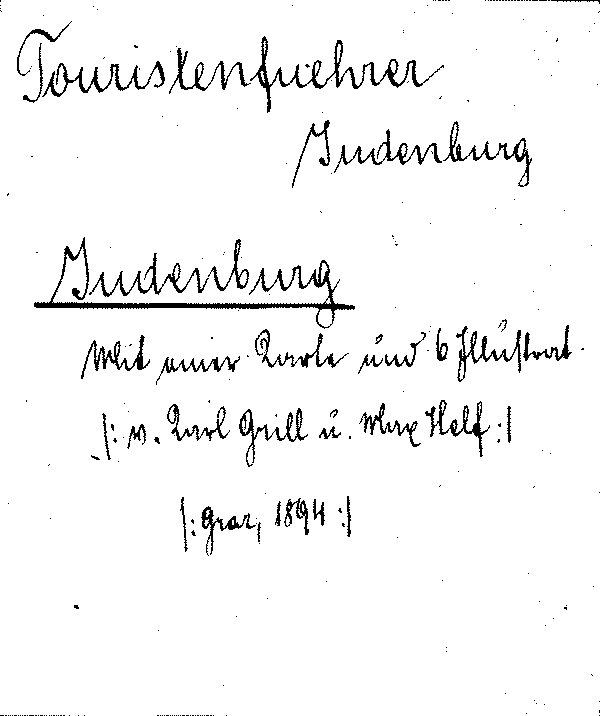 Touristenfuehrer
Judenburg
Judenburg
Mit einer Karte und 6 Illustrat.
|: v. Karl Grill u. Max Helf :|
|: Graz, 1894 :|